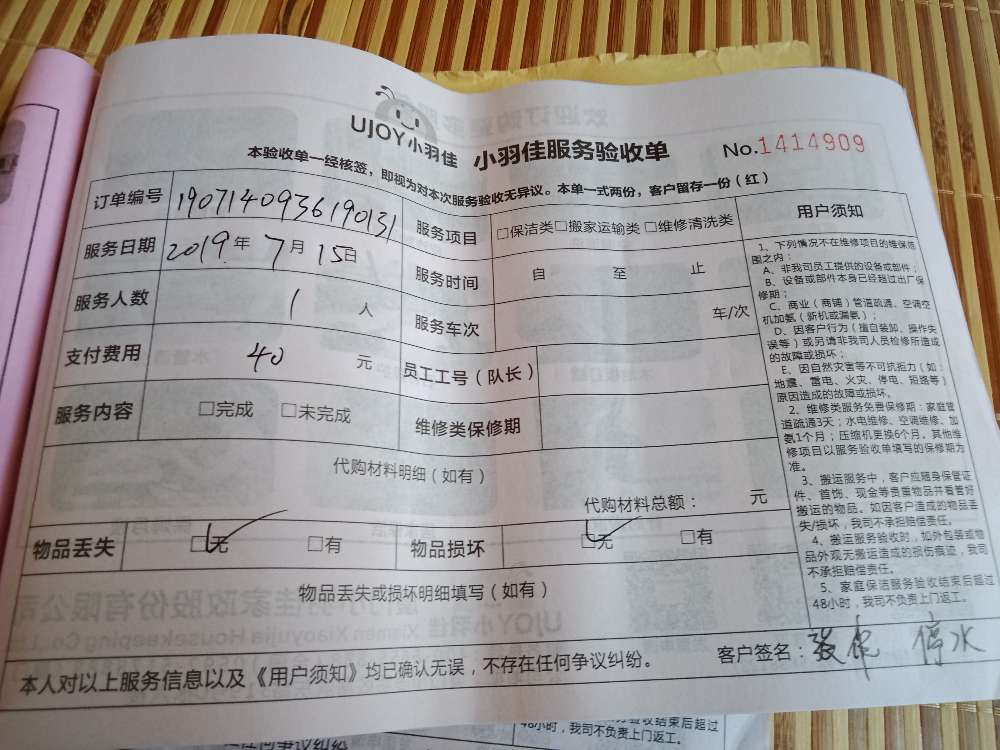 UJOY小羽佳 小羽佳服务验收单 No.1414909
本验收单一经核签，即视为对本次服务验收无异议。本单一式两份，客户留存一份（红）
订单编号 190714093619 0131 服务项目 □保洁类□搬家运输类□维修清洗类
服务日期 2019年7月15日 服务时间 自 至 止
服务人数 1 人 服务车次 车/次
支付费用 40 元 员工工号（队长）
服务内容 □完成 □未完成 维修类保修期
代购材料明细（如有）
代购材料总额： 元
物品丢失 □无 □有 物品损坏 □无 □有
物品丢失或损坏明细填写（如有）
本人对以上服务信息以及《用户须知》均已确认无误，不存在任何争议纠纷。
客户签名： 停水
用户须知
1、下列情况不在维修项目的维保范
围之内：
A、非我司员工提供的设备或部件；
B、设备或部件本身已经超过出厂保
修期；
C、商业（商铺）管道疏通、空调空
机加氨（新机或漏氨）；
D、因客户行为（擅自装卸、操作失
误等）或另请非我司人员检修所造成
的故障或损坏；
E、因自然灾害等不可抗拒力（如：
地震、雷电、火灾、停电、短路等）
原因造成的故障或损坏。
2、维修类服务免费保修期：家庭管
道疏通3天；水电维修、空调维修、加
氨1个月；压缩机更换6个月。其他维
修项目以服务验收单填写的保修期为
准。
3、搬运服务中，客户应随身保管证
件、首饰、现金等贵重物品并看管好
搬运的物品。如因客户造成的物品丢
失/损坏，我司不承担赔偿责任。
4、搬运服务验收时，如外包装或物
品外观无搬运造成的损伤痕迹，我司
不承担赔偿责任。
5、家庭保洁服务验收结束后超过
48小时，我司不负责上门返工。
验收结束后超过
48小时，我司不负责上门返工。
任何争议纠纷